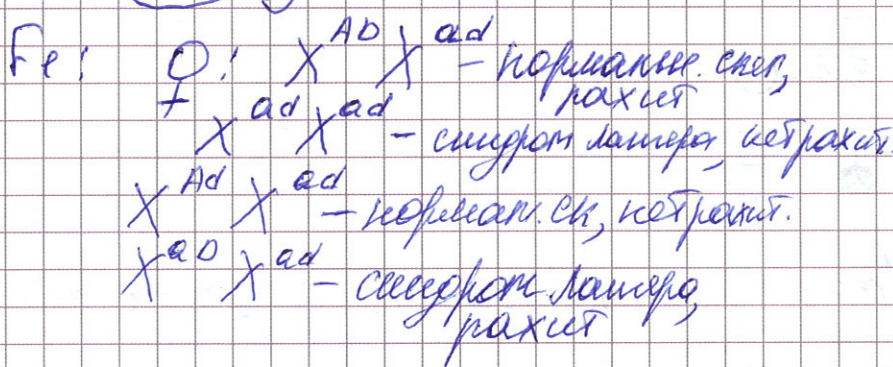 F₂: ♀: X^AD X^ad – нормальн. скел,
рахит
X^ad X^ad – синдром лашера, нет рахит.
X^Ad X^ad – нормал. ск, нет рахит.
X^aD X^ad – синдром лашера,
рахит